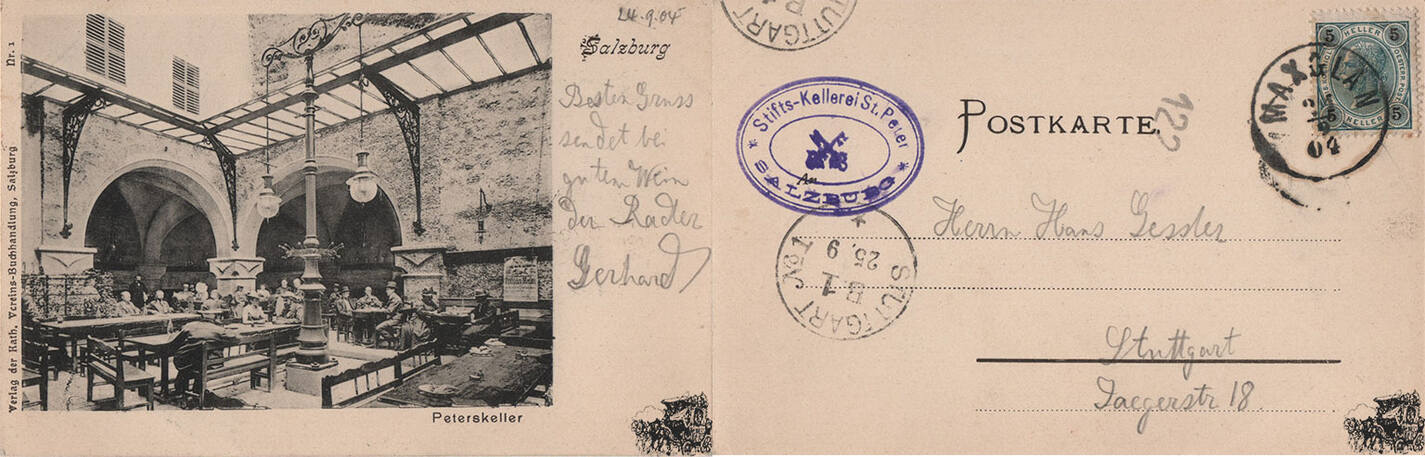 Nr. 1
Verlag der Kath. Vereins-Buchhandlung, Salzburg
24.9.04
Salzburg
Besten Gruss
sendet bei
gutem Wein
Der Radler
Gerhard
Peterskeller
STUTTGART
Stifts-Kellerei St. Peter
SALZBURG
An
POSTKARTE.
122
5 5
HELLER
5 5
HELLER
MAXGLAN
04
Herrn Hans Gessler
STUTTGART
B 1
25.9
Stuttgart
Jaegerstr 18.